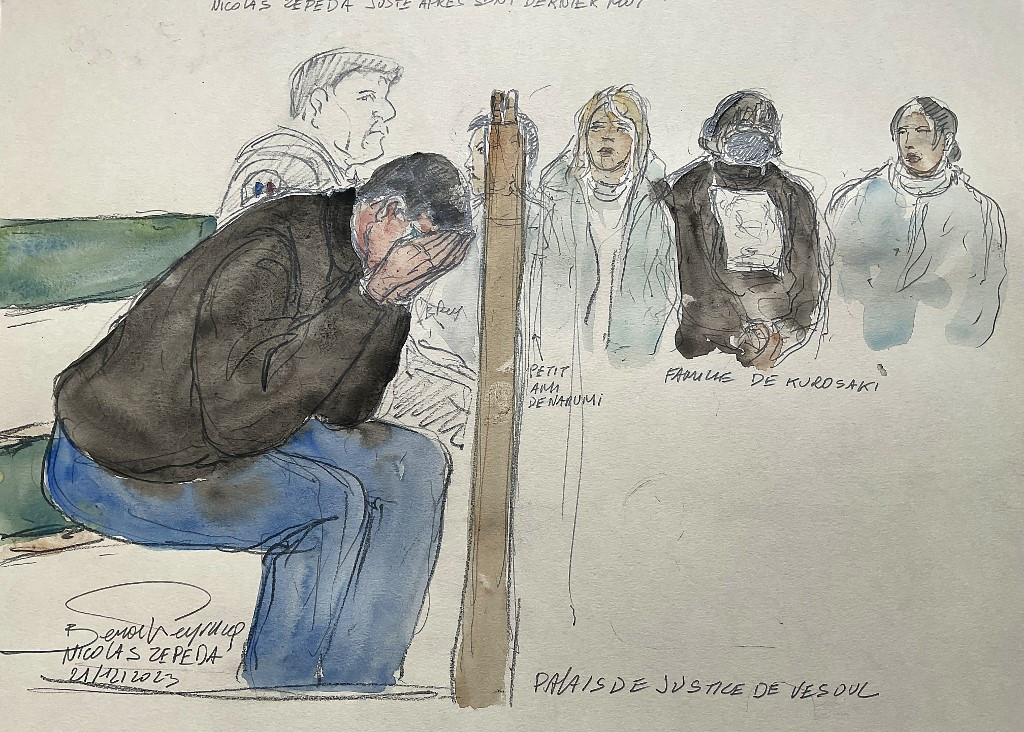 NICOLAS ZEPEDA JUSTE APRES SONT DERNIER MOT
PETIT
AMI
DE NARUMI
FAMILLE DE KUROSAKI
NICOLAS ZEPEDA
21/12/2023
PALAIS DE JUSTICE DE VESOUL